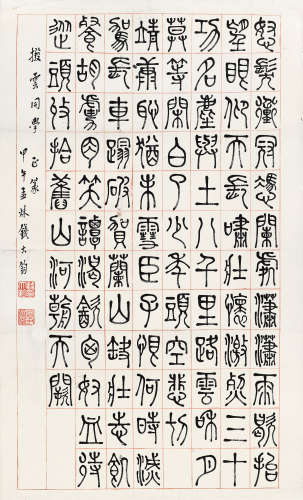 怒髮衝冠憑闌處瀟瀟雨歇抬
望眼仰天長嘯壯懷激烈三十
功名塵與土八千里路雲和月
莫等閒白了少年頭空悲切
靖康恥猶未雪臣子恨何時滅
駕長車踏破賀蘭山缺壯志飢
餐胡虜肉笑談渴飲匈奴血待
從頭收拾舊山河朝天闕
撥雲同學 正篆
甲午孟秋錢大鈞